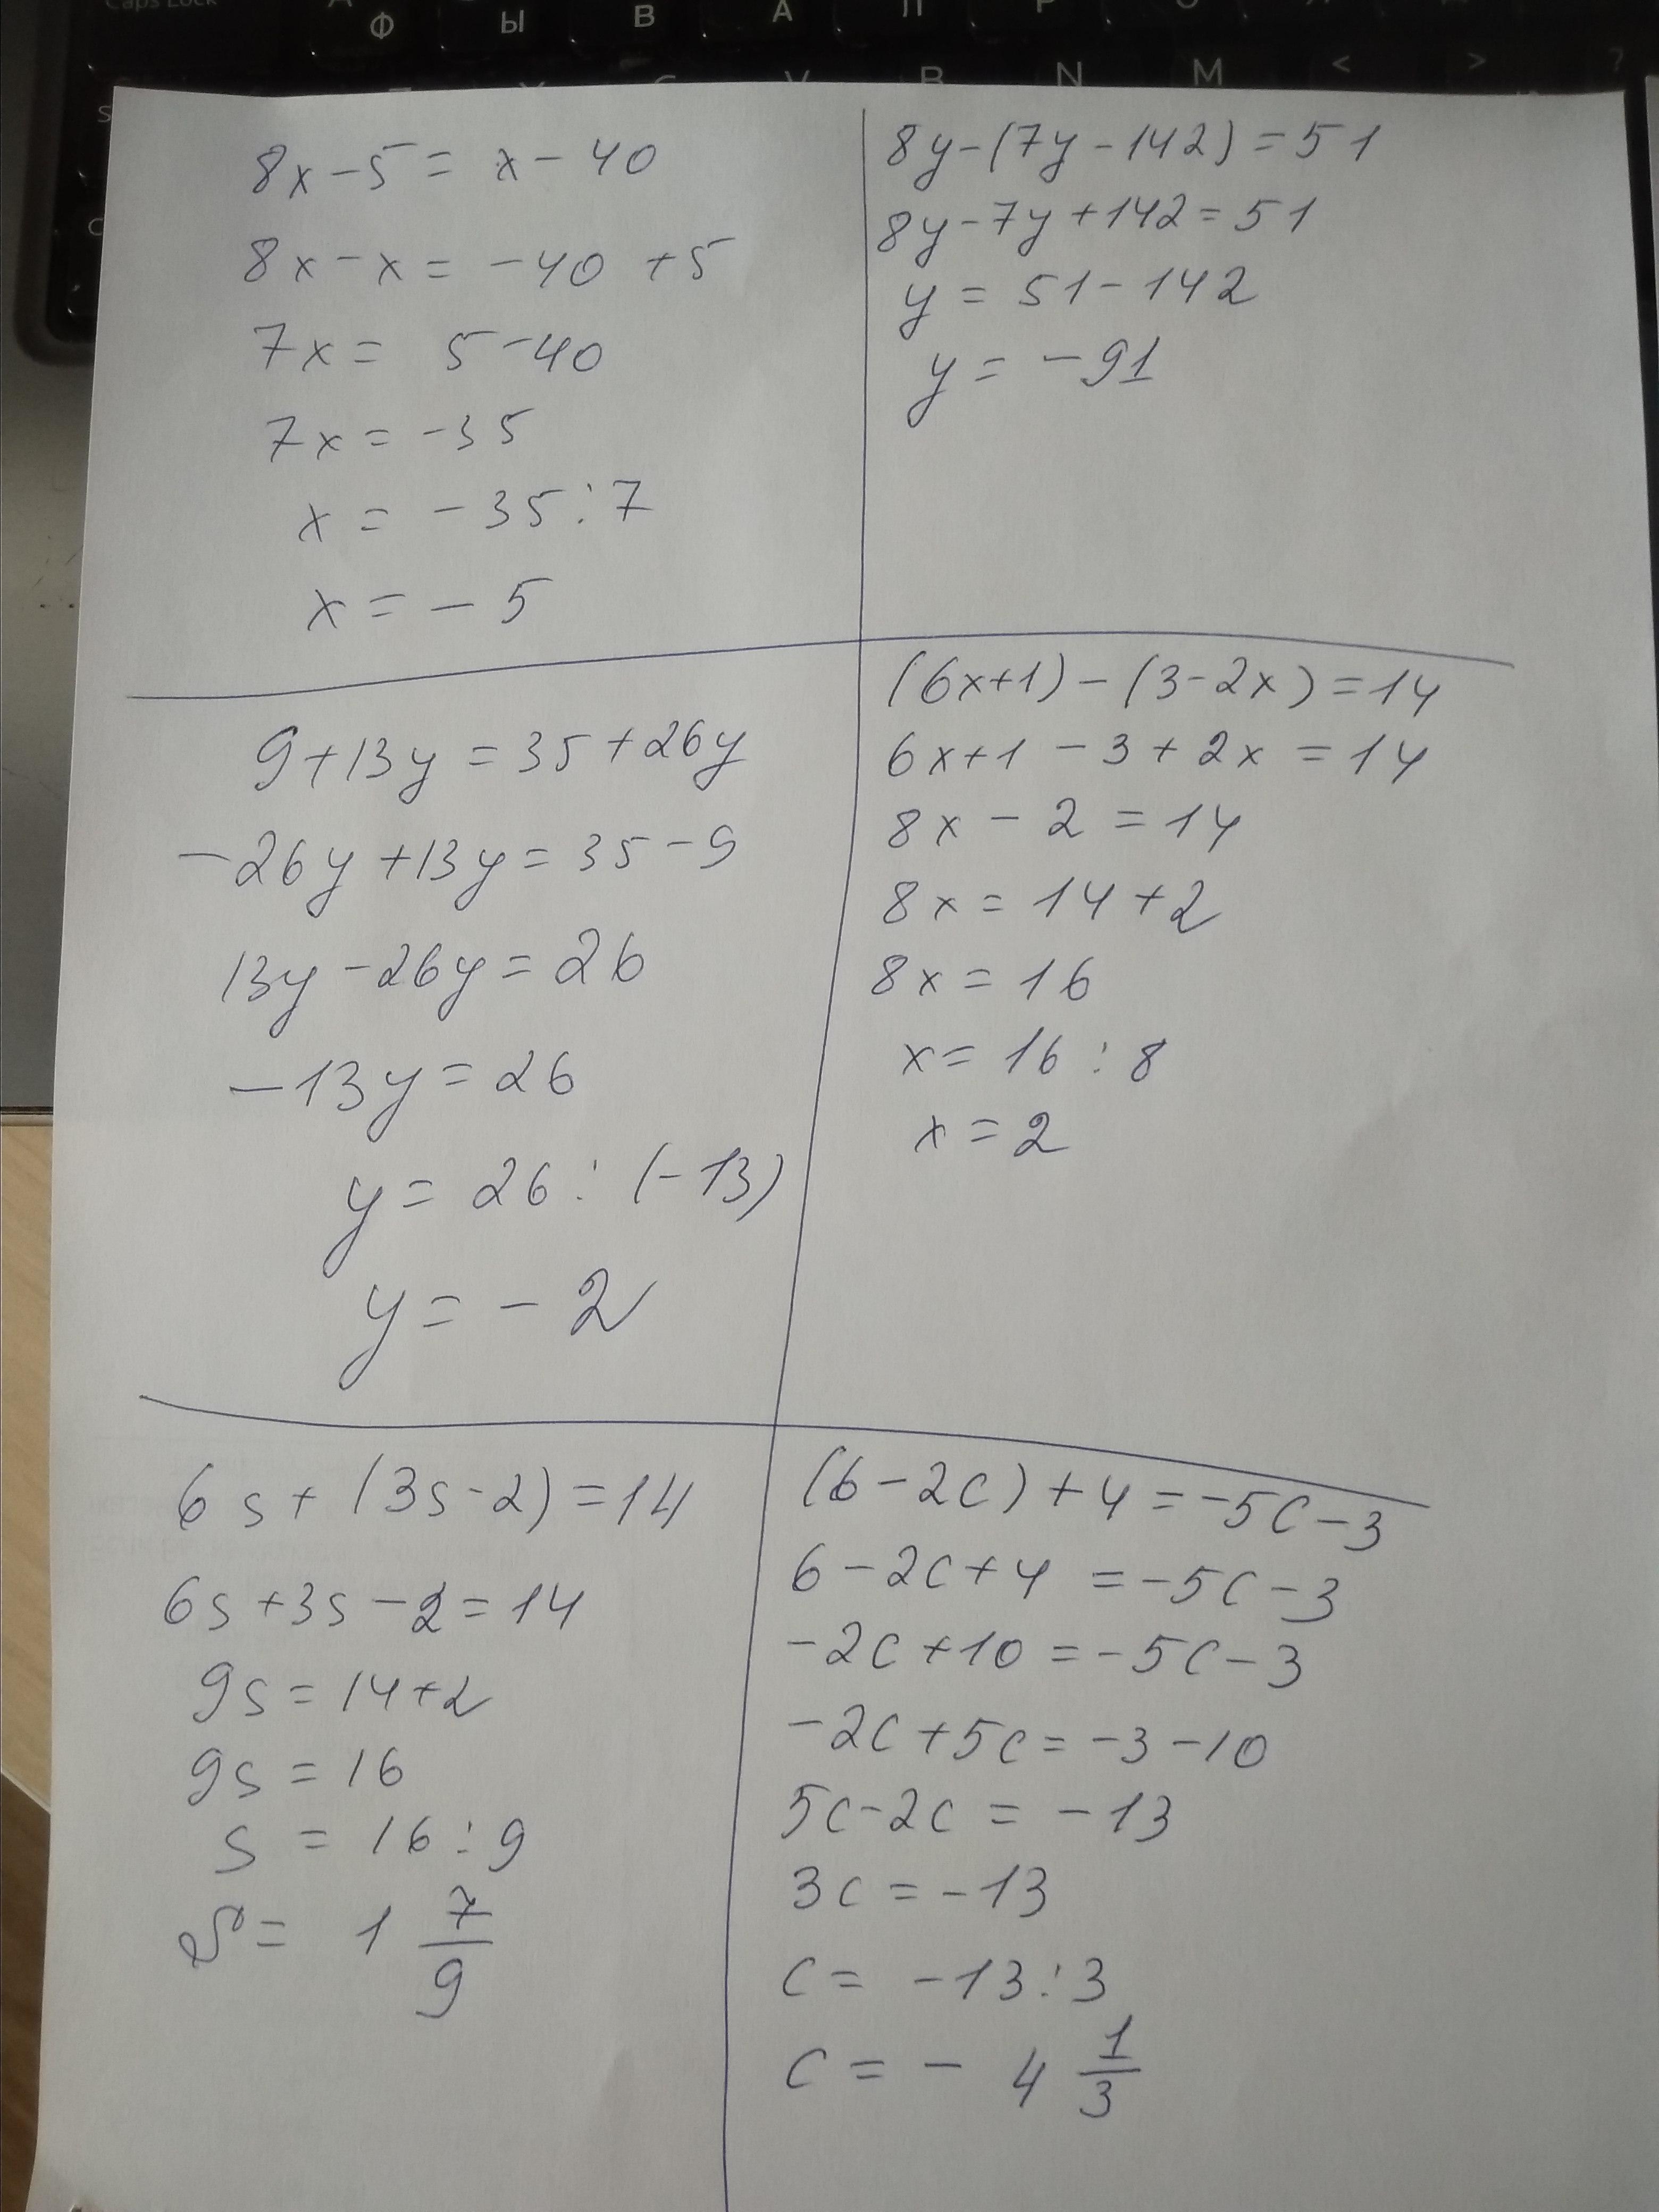 Caps Lock
Ф Ы В А П Р
B N M < > ?
8x - 5 = x - 40
8x - x = -40 + 5
7x = 5 - 40
7x = -35
x = -35 : 7
x = -5
8y - (7y - 142) = 51
8y - 7y + 142 = 51
y = 51 - 142
y = -91
9 + 13y = 35 + 26y
-26y + 13y = 35 - 9
13y - 26y = 26
-13y = 26
y = 26 : (-13)
y = -2
(6x+1) - (3-2x) = 14
6x+1 - 3 + 2x = 14
8x - 2 = 14
8x = 14 + 2
8x = 16
x = 16 : 8
x = 2
6s + (3s - 2) = 14
6s + 3s - 2 = 14
9s = 14 + 2
9s = 16
s = 16 : 9
s = 1 7/9
(6 - 2c) + 4 = -5c - 3
6 - 2c + 4 = -5c - 3
-2c + 10 = -5c - 3
-2c + 5c = -3 - 10
5c - 2c = -13
3c = -13
c = -13 : 3
c = -4 1/3